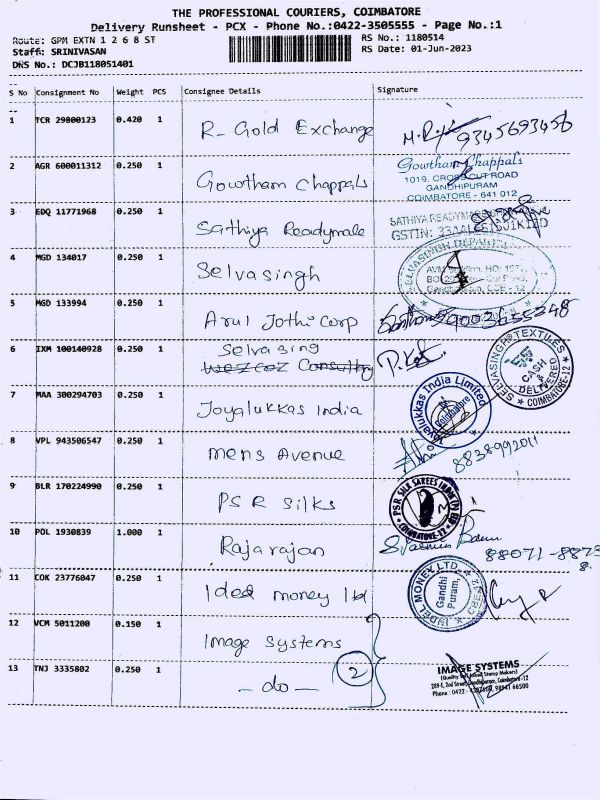 THE PROFESSIONAL COURIERS, COIMBATORE
Delivery Runsheet - PCX - Phone No.:0422-3505555 - Page No.:1
Route: GPM EXTN 1 2 6 8 ST
RS No.: 1180514
Staff: SRINIVASAN
RS Date: 01-Jun-2023
DRS No.: DCJB118051401
S No Consignment No Weight PCS Consignee Details Signature
1 TCR 29800123 0.420 1 R- Gold Exchange 9345693456
2 AGR 600011312 0.250 1 Gowtham Chappals
Gowtham Chappals
1019, CROSS CUT ROAD
GANDHIPURAM
COIMBATORE - 641 012
3 EDQ 11771968 0.250 1 Sathiya Readymade
SATHIYA READYMADE
GSTIN:
4 MGD 134017 0.250 1 Selvasingh
5 MGD 133994 0.250 1 Arul Jothi Corp 9003655348
6 IXM 100140928 0.250 1 Selvasing
SELVASINGH TEXTILES
CASH
&
DELIVERED
COIMBATORE-12
7 MAA 300294703 0.250 1 Joyalukkas India
Joyalukkas India Limited
Coimbatore
8 VPL 943506547 0.250 1 mens Avenue 8838992011
9 BLR 170224990 0.250 1 PSR Silks
PSR SILK SAREES INDIA (P) LTD
COIMBATORE-12
10 POL 1930839 1.000 1 Rajarajan 88071-8873
8.
11 COK 23776047 0.250 1 Ided money ltd
INDEL MONEY LTD.
Gandhi
Puram,
12 VCM 5011200 0.150 1 Image Systems
13 TNJ 3335802 0.250 1 - do - 2
IMAGE SYSTEMS